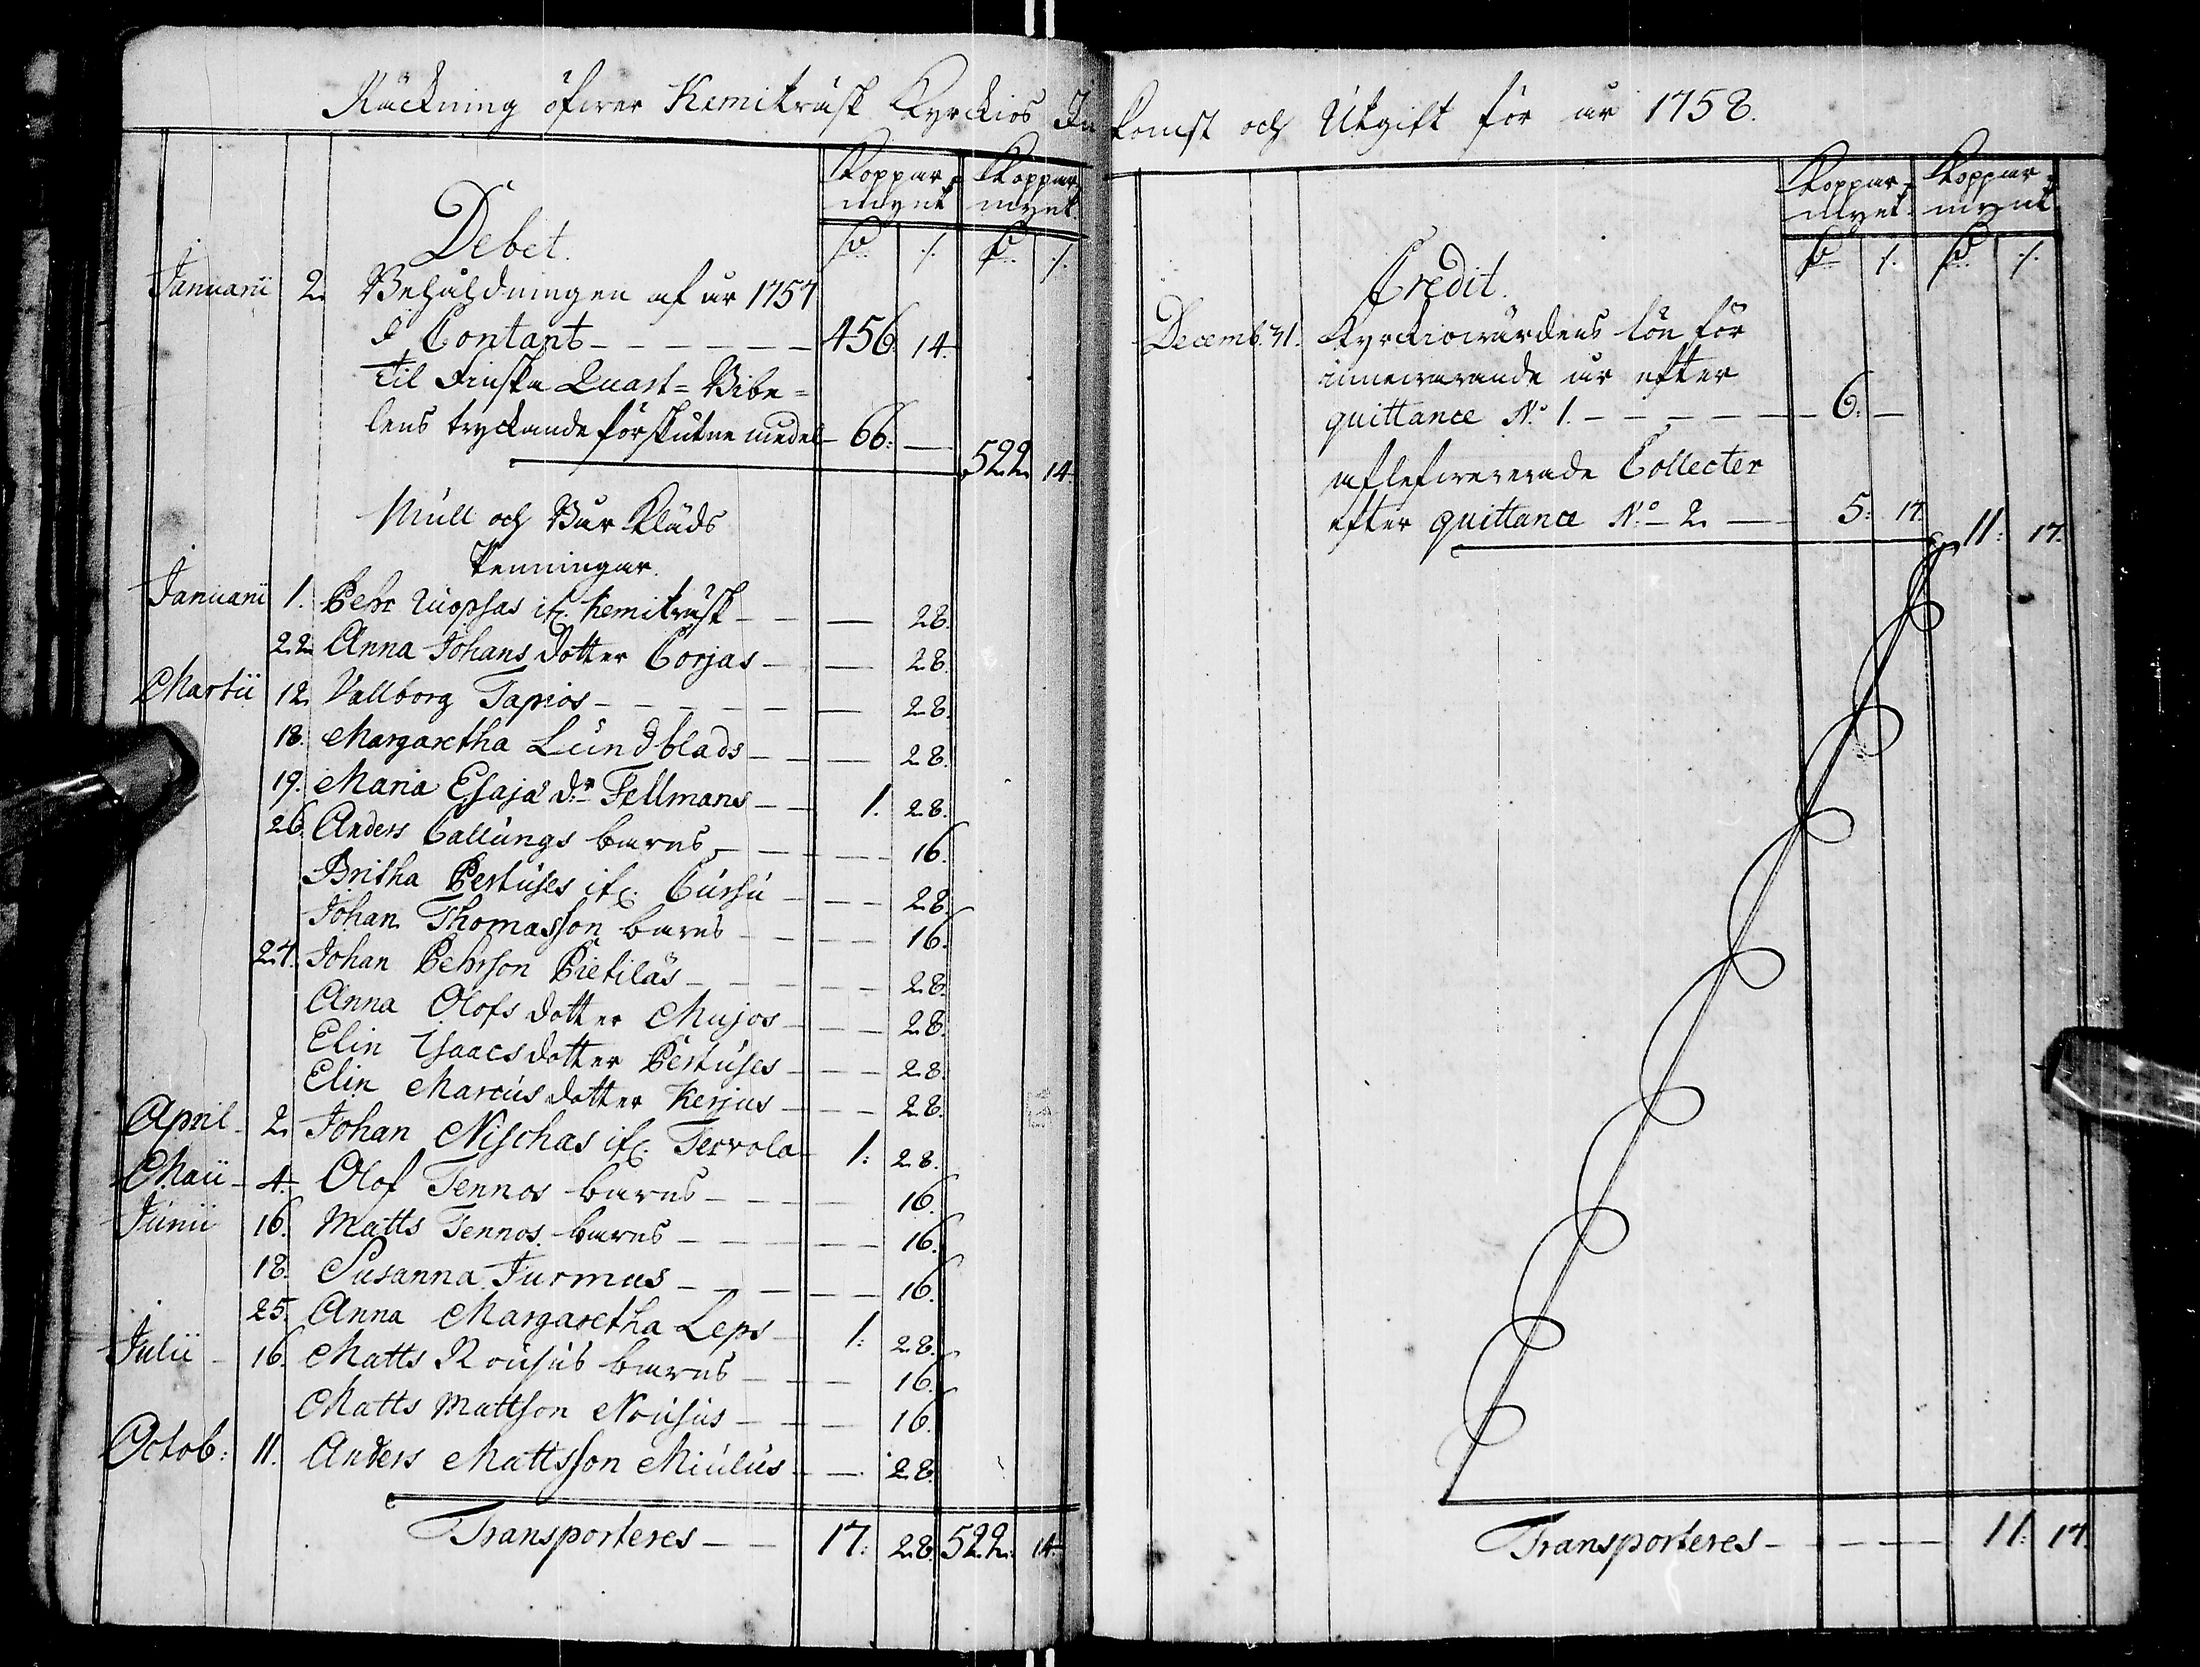 Räckning öfwer Kemiträsk Kyrckios In
Koppar Koppar
mynt mynt
Debet.
Januarii 2. Behåldningen af år 1757
i Contant - 456. 14.
til Finska Quart-Bibe-
lens tryckande förskutne medel - 66: —
522. 14.
Mull och Bår Kläds
Penningar.
Januarii 1. Pehr Uiophas if: Kemiträsk — 28.
22. Anna Johans dotter Corjas — 28.
Martii 12. Vallborg Tapios — 28.
18. Margaretha Lundblads — 28.
19. Maria Esaja dr Fellmans — 1. 28.
26. Anders Callungs barns — 16.
Britha Pertuses if: Cursu — 28.
Johan Thomasson barns — 16.
27. Johan Pehrson Pietiläs — 28.
Anna Olofs dotter Mujos — 28.
Elin Isaacs dotter Pertuses — 28.
Elin Marcus dotter Kerjus — 28.
April 2. Johan Nischas if: Tervola 1: 28.
Maii 4. Olof Tennos barns — 16.
Junii 16. Matts Tennos barns — 16.
18. Susanna Jurmus — 16.
25. Anna Margaretha Leps 1: 28.
Julii 16. Matts Rousus barns — 16.
Matts Mattson Nousus — 16.
Octob: 11. Anders Mattsson Miulus — 28.
Transporteres — 17: 28. 522. 14.
komst och Utgift för år 1758.
Koppar Koppar
mynt mynt
Credit.
Decemb. 31. Kyrckiowärdens lön för
innewarande år efter
quittance No 1. — 6: —
aflefwererade Collecter
efter quittance No 2. — 5: 17. 11: 17.
Transporteres — 11: 17.